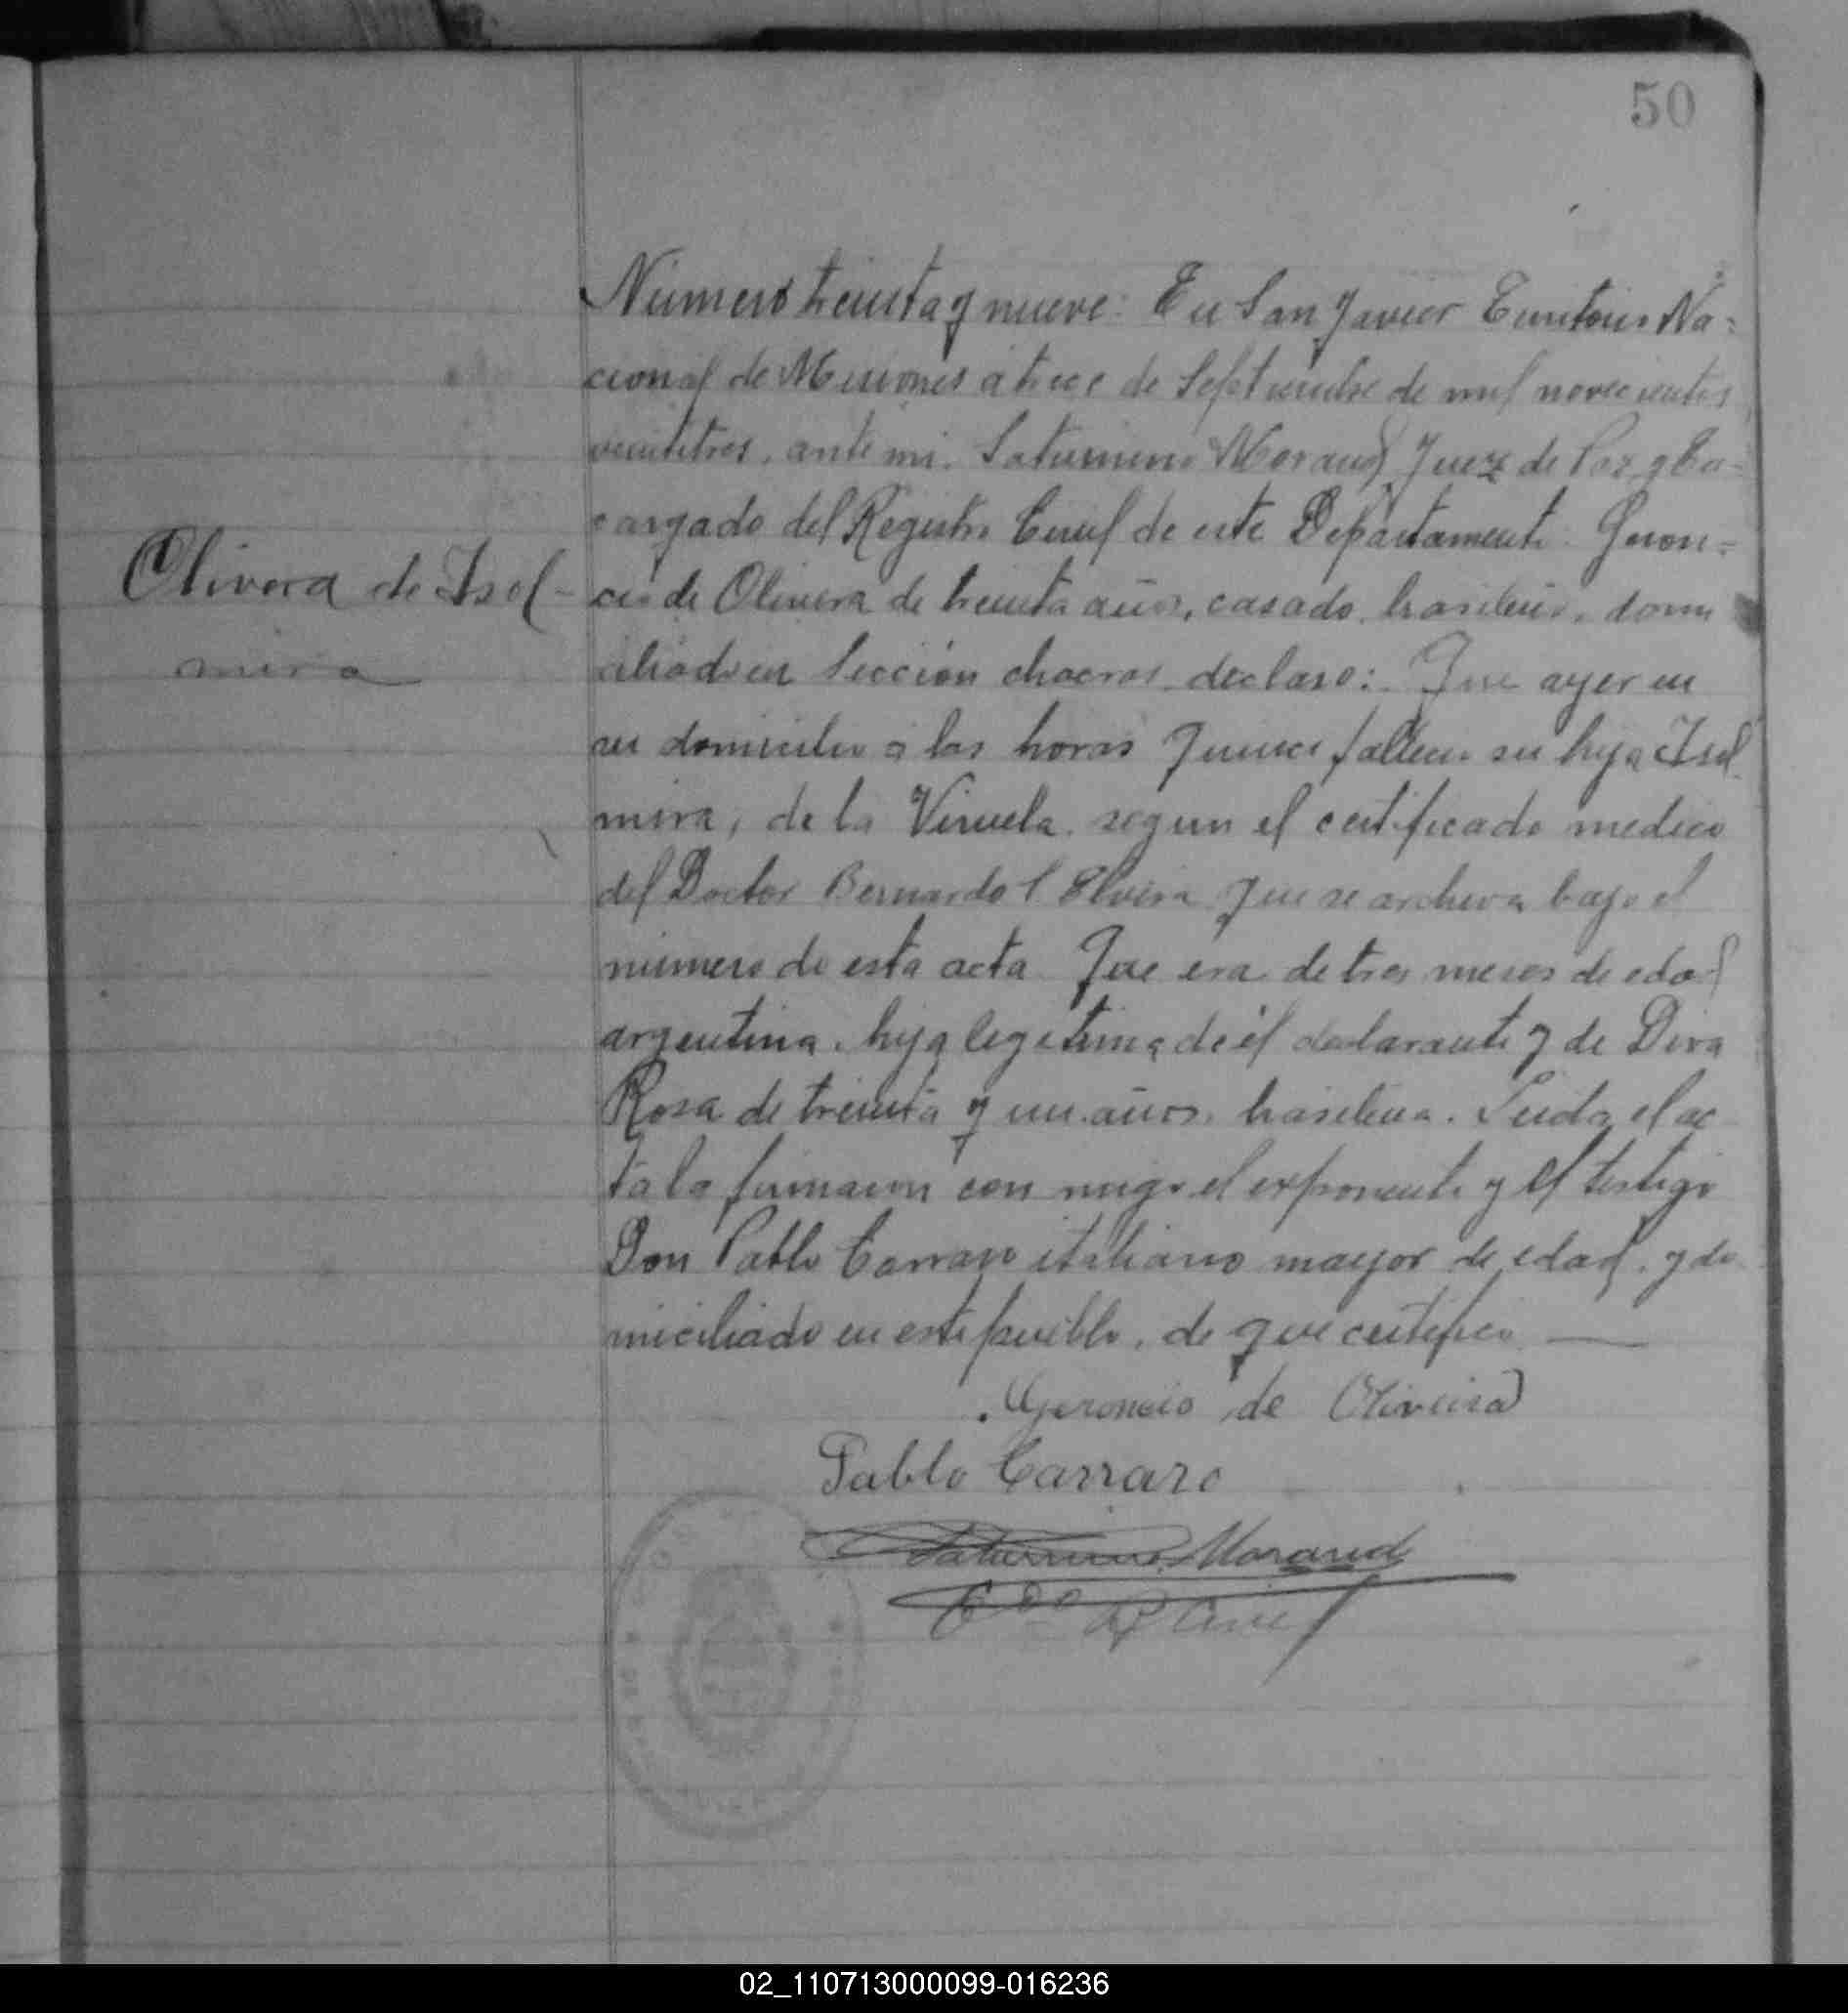 50
Número treinta y nueve: En San Javier Territorio Na=
cional de Misiones a trece de Septiembre de mil novecientos
veintitres, ante mi. Saturnino Morand Juez de Paz y En-
cargado del Registro Civil de este Departamento. Geron=
cio de Olivera de treinta años, casado, brasilero, domi
Olivera de Isol-
mira
ciliado en Sección chacras declaro: Que ayer en
su domicilio a las horas quince fallecio su hija Isol
mira, de la Viruela segun el certificado medico
del Doctor Bernardo Elvira que se archiva bajo el
número de esta acta Que era de tres meses de edad
argentina, hija legitima de el declarante y de Diva
Rosa de treinta y un años, brasilera. Leida el ac
ta la firmaron con migo el exponente y el testigo
Don Pablo Carraro italiano mayor de edad, y do
miciliado en este pueblo, de que certifico
Geroncio de Oliveira
Pablo Carraro
Saturnino Morand
Edo R Civil
02_110713000099-016236